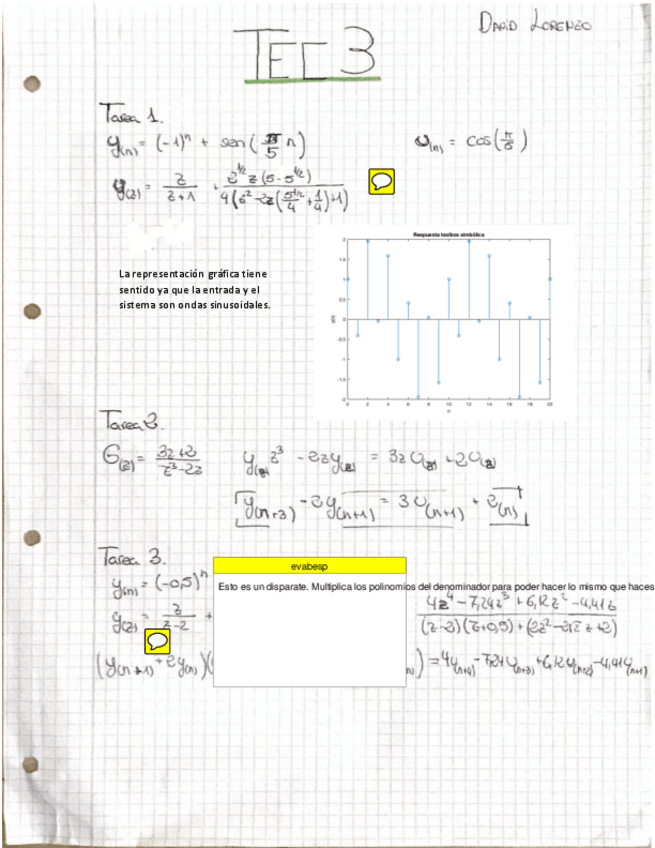 DAVID LORENZO
TEC 3
Tarea 1.
y(n) = (-1)^n + sen(π/5 n)
U(n) = cos(π/5)
y(z) = z/(z+1) + 2^(1/2) z (5-5^(1/2)) / 4(z^2 - 2z(5^(1/2)/4 + 1/4)+1)
La representación gráfica tiene
sentido ya que la entrada y el
sistema son ondas sinusoidales.
Respuesta toolbox simbólica
y(n)
2
1.5
1
0.5
0
-0.5
-1
-1.5
-2
0 2 4 6 8 10 12 14 16 18 20
n
Tarea 2.
G(z) = (3z+2)/(z^3-2z)
y(z) z^3 - 2z y(z) = 3z U(z) + 2U(z)
y(n+3) - 2y(n+1) = 3U(n+1) + 2(n)
Tarea 3.
evabesp
Esto es un disparate. Multiplica los polinomios del denominador para poder hacer lo mismo que haces
y(n) = (-0,5)^n
y(z) = z/(z-2) +
(4z^4 - 7,24z^3 + 6,12z^2 - 4,41z) / ((z-2)(z+0,5)+(2z^2-2√2 z+2))
(y(n+1) + 2y(n))(
) = 4U(n+4) - 7,24U(n+3) + 6,12U(n+2) - 4,41U(n+1)